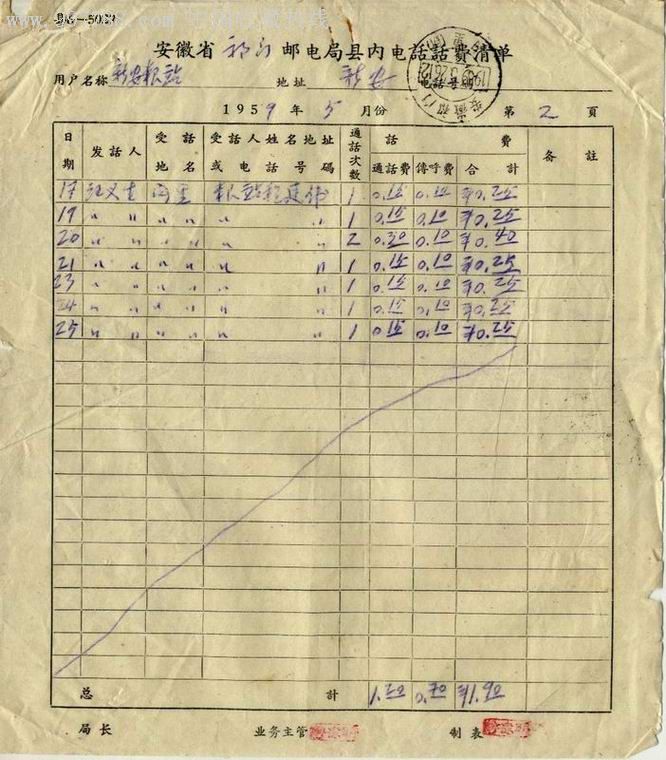 安徽省祁门邮电局县内电话話費清单
用户名称 新安粮站 地址 新安
1959年5月份 第2頁
日期 发話人 受話地名 受話人姓名地址或电話号碼 通話次数 話費 备註
通話費 傳呼費 合計
17 1 0.15 0.10 ¥0.25
19 〃 〃 〃 〃 〃 〃 1 0.15 0.10 ¥0.25
20 〃 〃 〃 〃 〃 〃 2 0.30 0.10 ¥0.40
21 〃 〃 〃 〃 〃 〃 1 0.15 0.10 ¥0.25
23 〃 〃 〃 〃 〃 〃 1 0.15 0.10 ¥0.25
24 〃 〃 〃 〃 〃 〃 1 0.15 0.10 ¥0.25
25 〃 〃 〃 〃 〃 〃 1 0.15 0.10 ¥0.25
总計 1.20 0.70 ¥1.90
局长 业务主管 制表